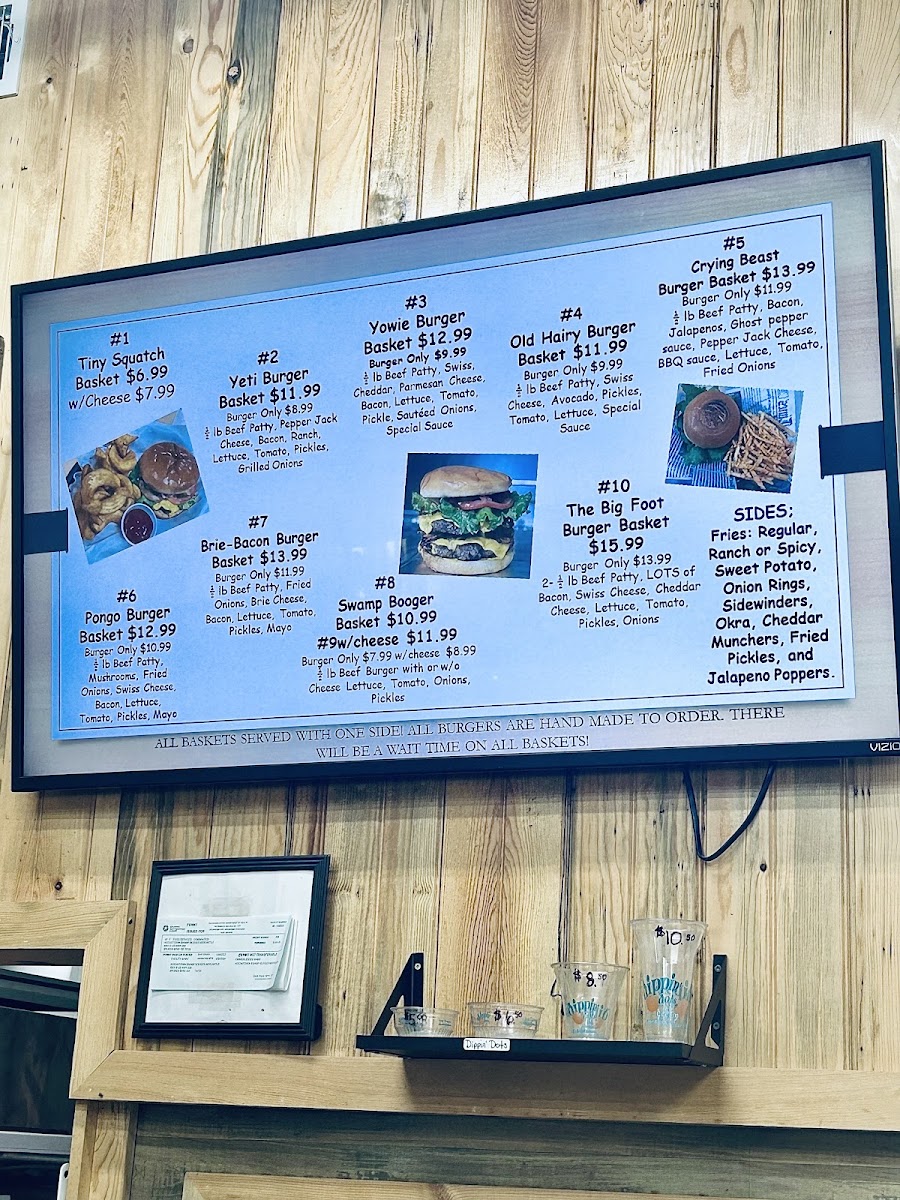 #1
Tiny Squatch
Basket $6.99
w/Cheese $7.99
#2
Yeti Burger
Basket $11.99
Burger Only $8.99
½ lb Beef Patty, Pepper Jack
Cheese, Bacon, Ranch,
Lettuce, Tomato, Pickles,
Grilled Onions
#3
Yowie Burger
Basket $12.99
Burger Only $9.99
½ lb Beef Patty, Swiss,
Cheddar, Parmesan Cheese,
Bacon, Lettuce, Tomato,
Pickle, Sautéed Onions,
Special Sauce
#4
Old Hairy Burger
Basket $11.99
Burger Only $9.99
½ lb Beef Patty, Swiss
Cheese, Avocado, Pickles,
Tomato, Lettuce, Special
Sauce
#5
Crying Beast
Burger Basket $13.99
Burger Only $11.99
½ lb Beef Patty, Bacon,
Jalapenos, Ghost pepper
sauce, Pepper Jack Cheese,
BBQ sauce, Lettuce, Tomato,
Fried Onions
#6
Pongo Burger
Basket $12.99
Burger Only $10.99
½ lb Beef Patty,
Mushrooms, Fried
Onions, Swiss Cheese,
Bacon, Lettuce,
Tomato, Pickles, Mayo
#7
Brie-Bacon Burger
Basket $13.99
Burger Only $11.99
½ lb Beef Patty, Fried
Onions, Brie Cheese,
Bacon, Lettuce, Tomato,
Pickles, Mayo
#8
Swamp Booger
Basket $10.99
#9w/cheese $11.99
Burger Only $7.99 w/cheese $8.99
½ lb Beef Burger with or w/o
Cheese Lettuce, Tomato, Onions,
Pickles
#10
The Big Foot
Burger Basket
$15.99
Burger Only $13.99
2- ½ lb Beef Patty, LOTS of
Bacon, Swiss Cheese, Cheddar
Cheese, Lettuce, Tomato,
Pickles, Onions
SIDES;
Fries: Regular,
Ranch or Spicy,
Sweet Potato,
Onion Rings,
Sidewinders,
Okra, Cheddar
Munchers, Fried
Pickles, and
Jalapeno Poppers.
ALL BASKETS SERVED WITH ONE SIDE! ALL BURGERS ARE HAND MADE TO ORDER. THERE
WILL BE A WAIT TIME ON ALL BASKETS!
VIZIO
PERMIT
$5.00
$6.50
$8.50
$10.50
dippin'
dots
dippin'
dots
Dippin' Dots